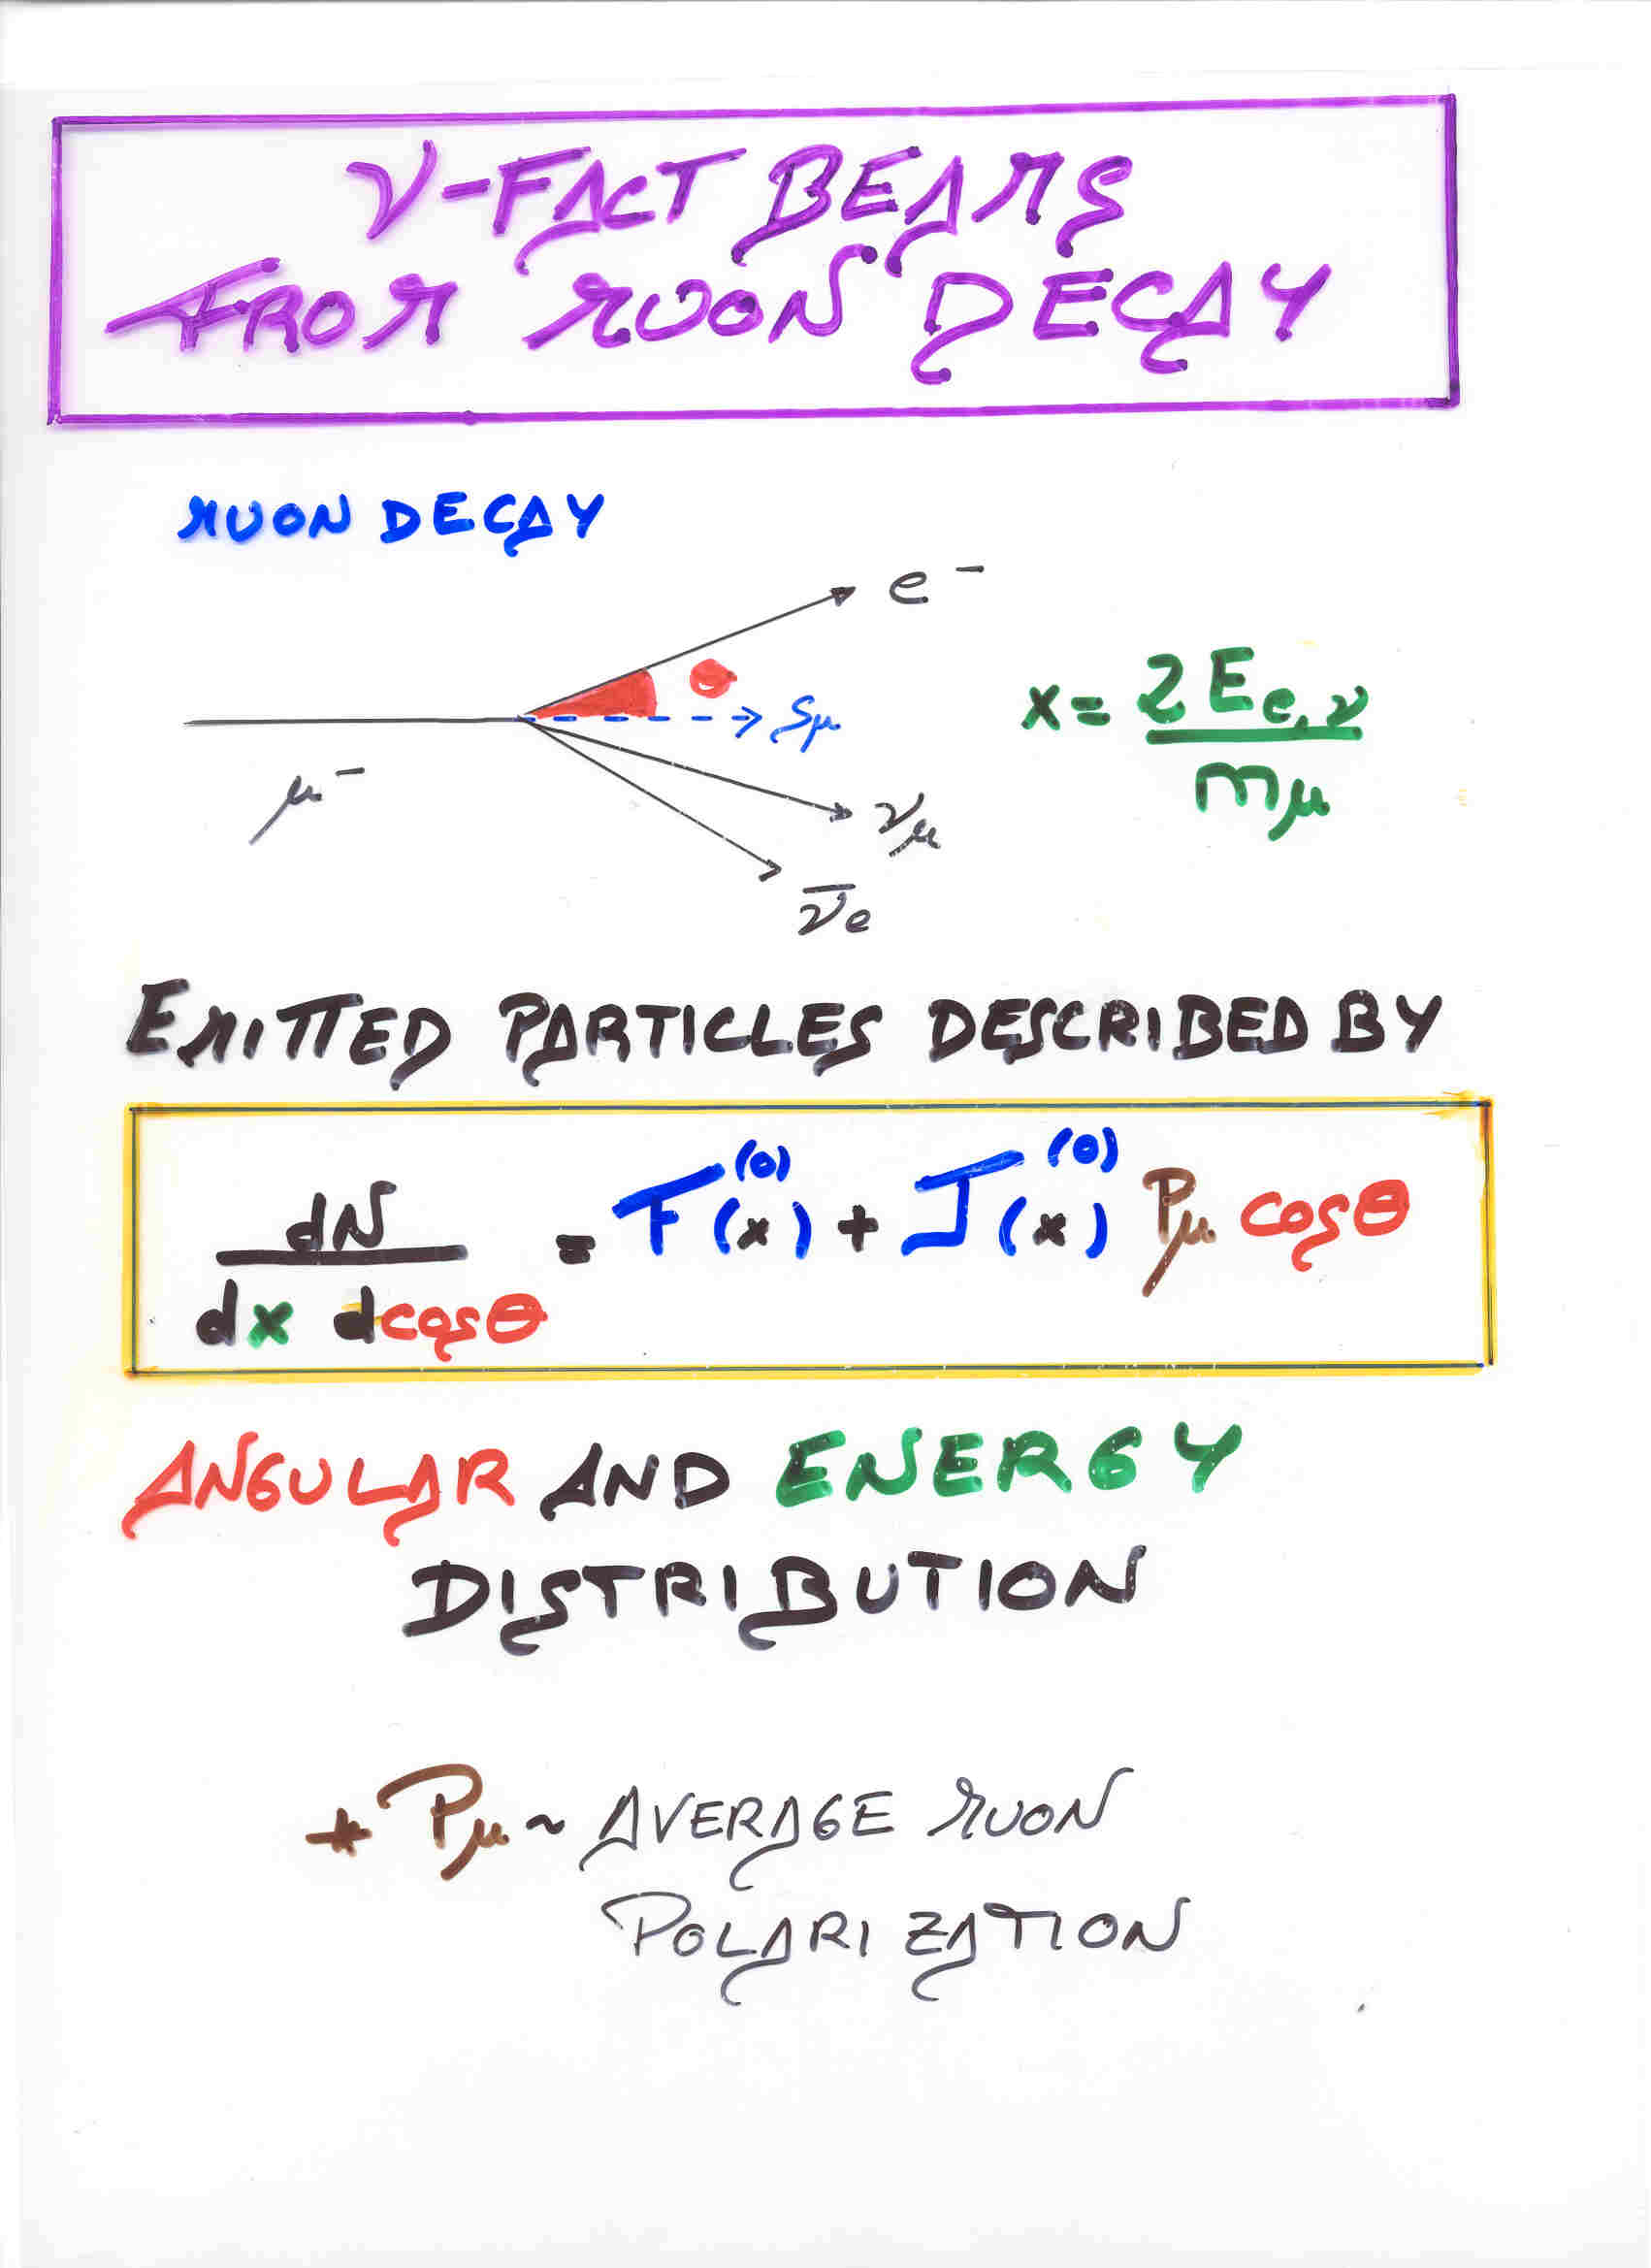 ν-FACT BEAMS
FROM MUON DECAY
MUON DECAY
e⁻
θ
Sμ
x = 2Ee,ν / mμ
μ⁻
νμ
ν̄e
EMITTED PARTICLES DESCRIBED BY
dN / dx dcosθ = F⁽⁰⁾(x) + J⁽⁰⁾(x) Pμ cosθ
ANGULAR AND ENERGY
DISTRIBUTION
* Pμ ~ AVERAGE MUON
POLARIZATION